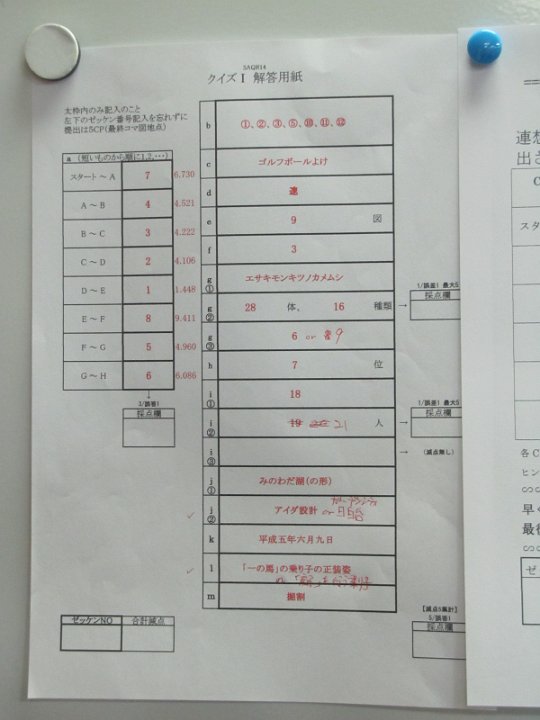 SAQR14
クイズⅠ 解答用紙
太枠内のみ記入のこと
左下のゼッケン番号記入を忘れずに
提出は5CP(最終コマ図地点)
a (短いものから順に1,2,…)
スタート～A 7 6.730
A～B 4 4.521
B～C 3 4.222
C～D 2 4.106
D～E 1 1.448
E～F 8 9.411
F～G 5 4.960
G～H 6 6.086
↓
3/誤答1
採点欄
b ①、②、③、⑤、⑩、⑪、⑫
c ゴルフボールよけ
d 連
e 9 図
f 3
g① エサキモンキツノカメムシ
g② 28 体、 16 種類 →
1/誤差1 最大5
採点欄
g③ 6 or 9
h 7 位
i① 18
i② 19 20 21 人 →
1/誤差1 最大5
採点欄
i③ → (減点無し)
j① みのわだ湖(の形)
j② アイダ設計 or
k 平成五年六月九日
l 「一の馬」の乗り子の正装姿
m 掘割
ゼッケンNO 合計減点
【減点S集計】
5/誤答1
採点欄
連想
出さ
スタ
各C
ヒン
早く
最後
ゼ